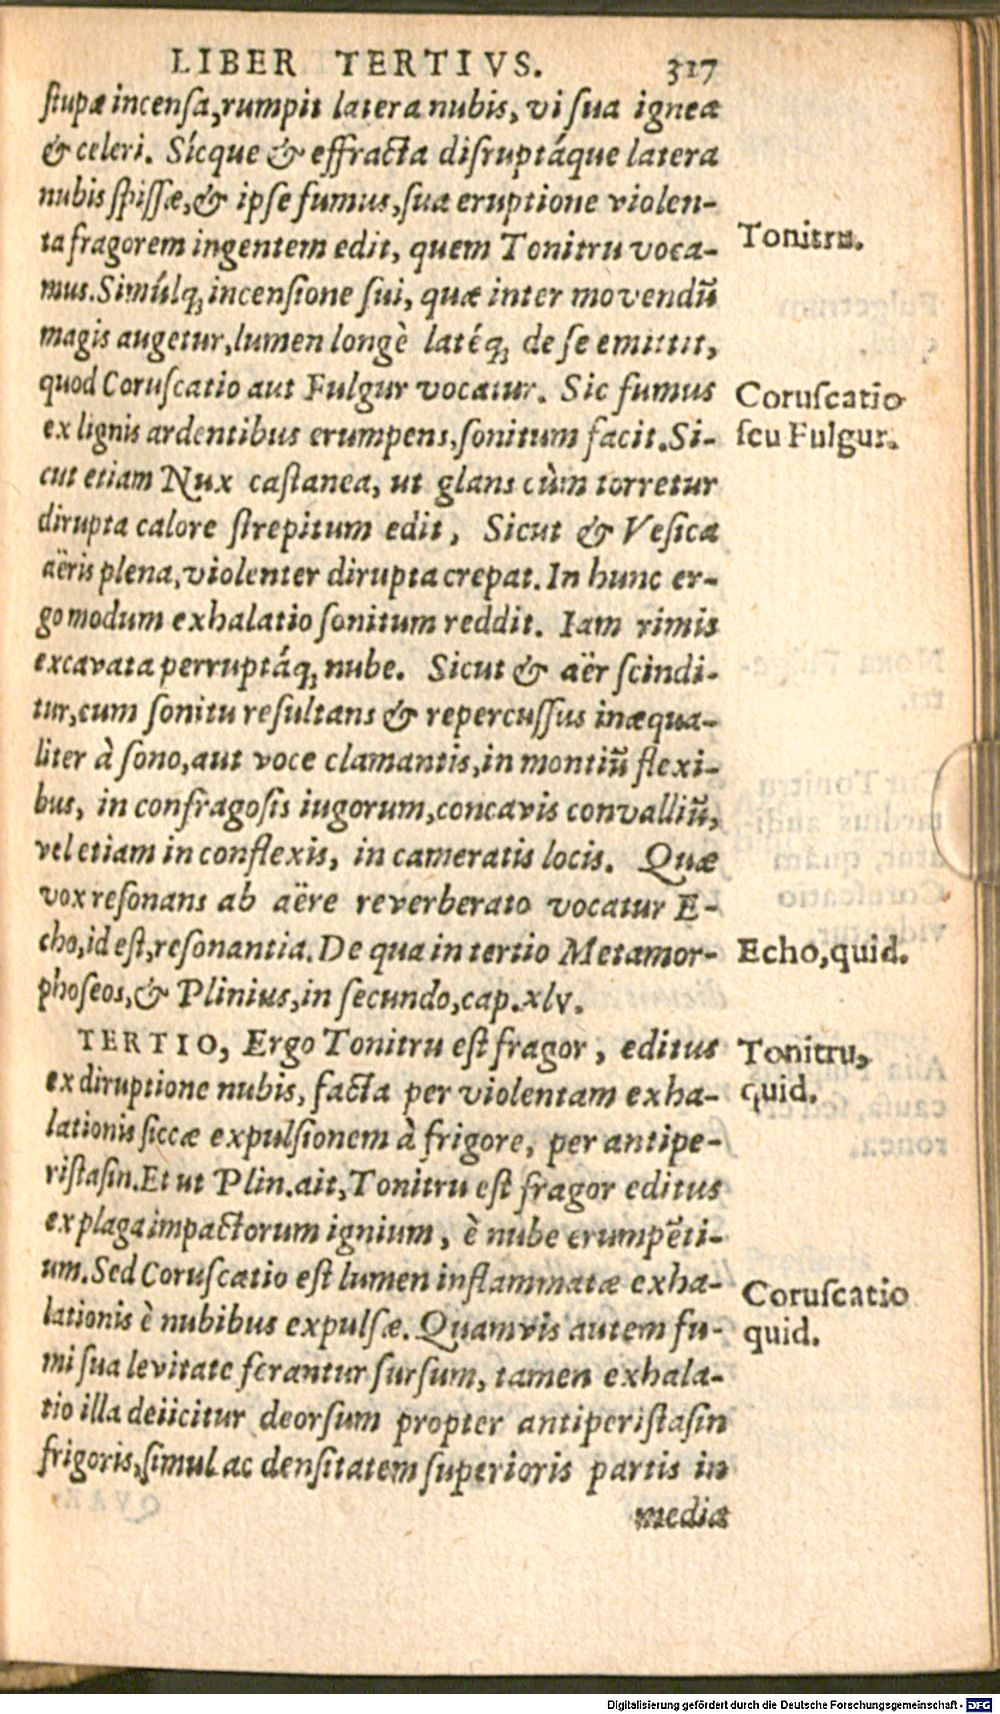 LIBER TERTIVS. 317
ſtupæ incenſa, rumpit latera nubis, vi ſua ignea
& celeri. Sícque & effracta diſruptáque latera
nubis ſpiſſæ, & ipſe fumus, ſua eruptione violen-
ta fragorem ingentem edit, quem Tonitru voca-
mus. Simúlq; incenſione ſui, quæ inter movendũ
magis augetur, lumen longè latéq; de ſe emittit,
quod Coruſcatio aut Fulgur vocatur. Sic fumus
ex lignis ardentibus erumpens, ſonitum facit. Si-
cut etiam Nux caſtanea, ut glans cùm torretur
dirupta calore ſtrepitum edit, Sicut & Veſica
aëris plena, violenter dirupta crepat. In hunc er-
go modum exhalatio ſonitum reddit. Iam rimis
excavata perruptáq; nube. Sicut & aër ſcindi-
tur, cum ſonitu reſultans & repercuſſus inæqua-
liter à ſono, aut voce clamantis, in montiũ flexi-
bus, in confragoſis iugorum, concavis convalliũ,
vel etiam in conflexis, in cameratis locis. Quæ
vox reſonans ab aëre reverberato vocatur E-
cho, id eſt, reſonantia. De qua in tertio Metamor-
phoſeos, & Plinius, in ſecundo, cap. xlv.
TERTIO, Ergo Tonitru eſt fragor, editus
ex diruptione nubis, facta per violentam exha-
lationis ſiccæ expulſionem à frigore, per antipe-
riſtaſin. Et ut Plin. ait, Tonitru eſt fragor editus
ex plaga impactorum ignium, è nube erumpẽti-
um. Sed Coruſcatio eſt lumen inflammatæ exha-
lationis è nubibus expulſæ. Quamvis autem fu-
mi ſua levitate ferantur ſurſum, tamen exhala-
tio illa deiicitur deorſum propter antiperiſtaſin
frigoris, ſimul ac denſitatem ſuperioris partis in
media
Tonitru.
Coruſcatio
ſeu Fulgur.
Echo, quid.
Tonitru,
quid.
Coruſcatio
quid.
Digitalisierung gefördert durch die Deutsche Forschungsgemeinschaft - DFG